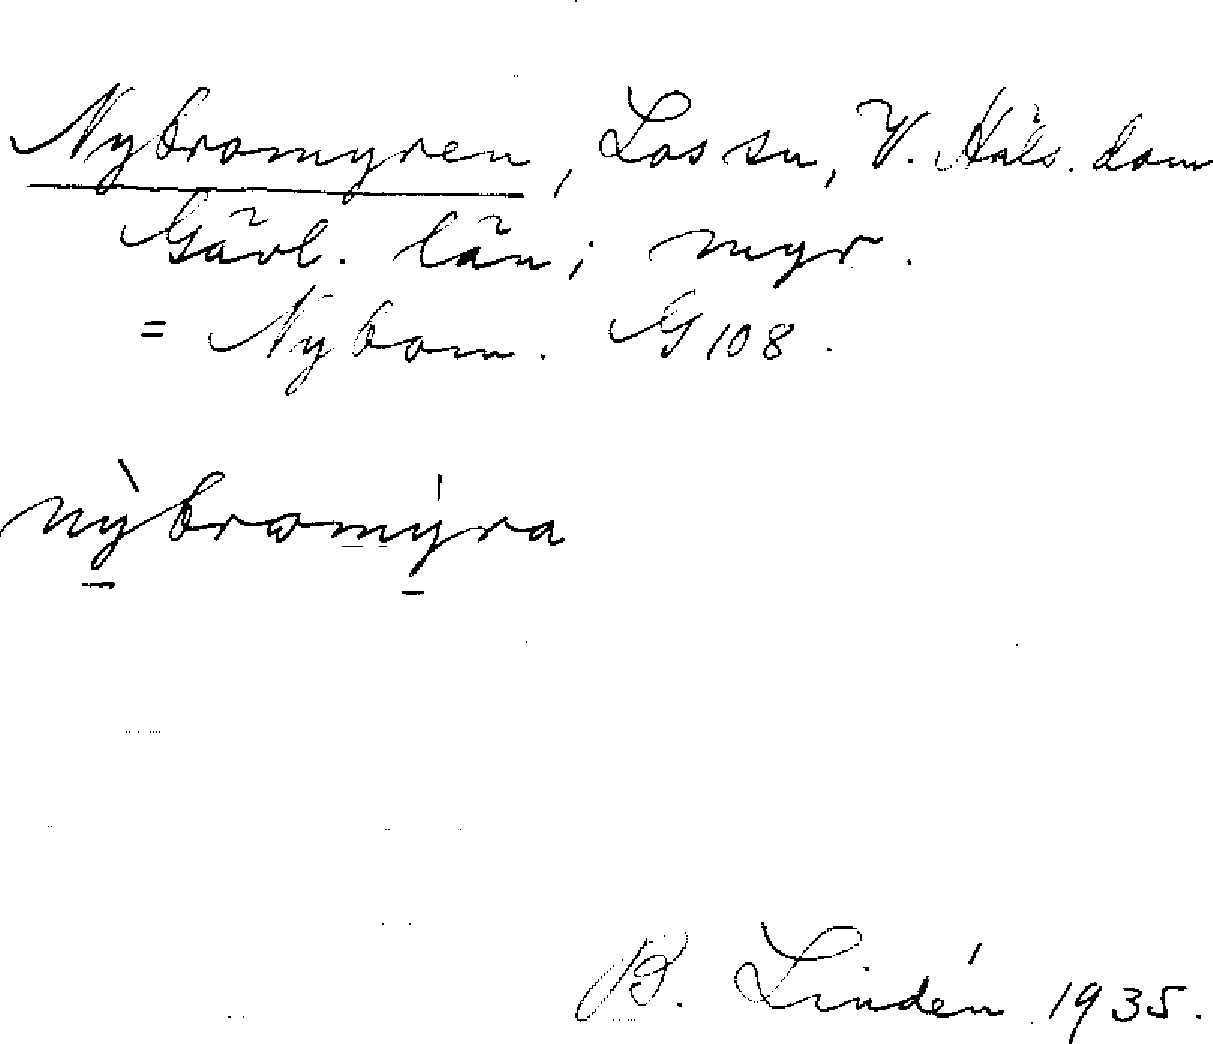 Nybromyren, Los sn, V. Häls. dom
Gävl. län; myr.
= Nybom. G 108.
nỳbromýra
B. Lindén 1935.